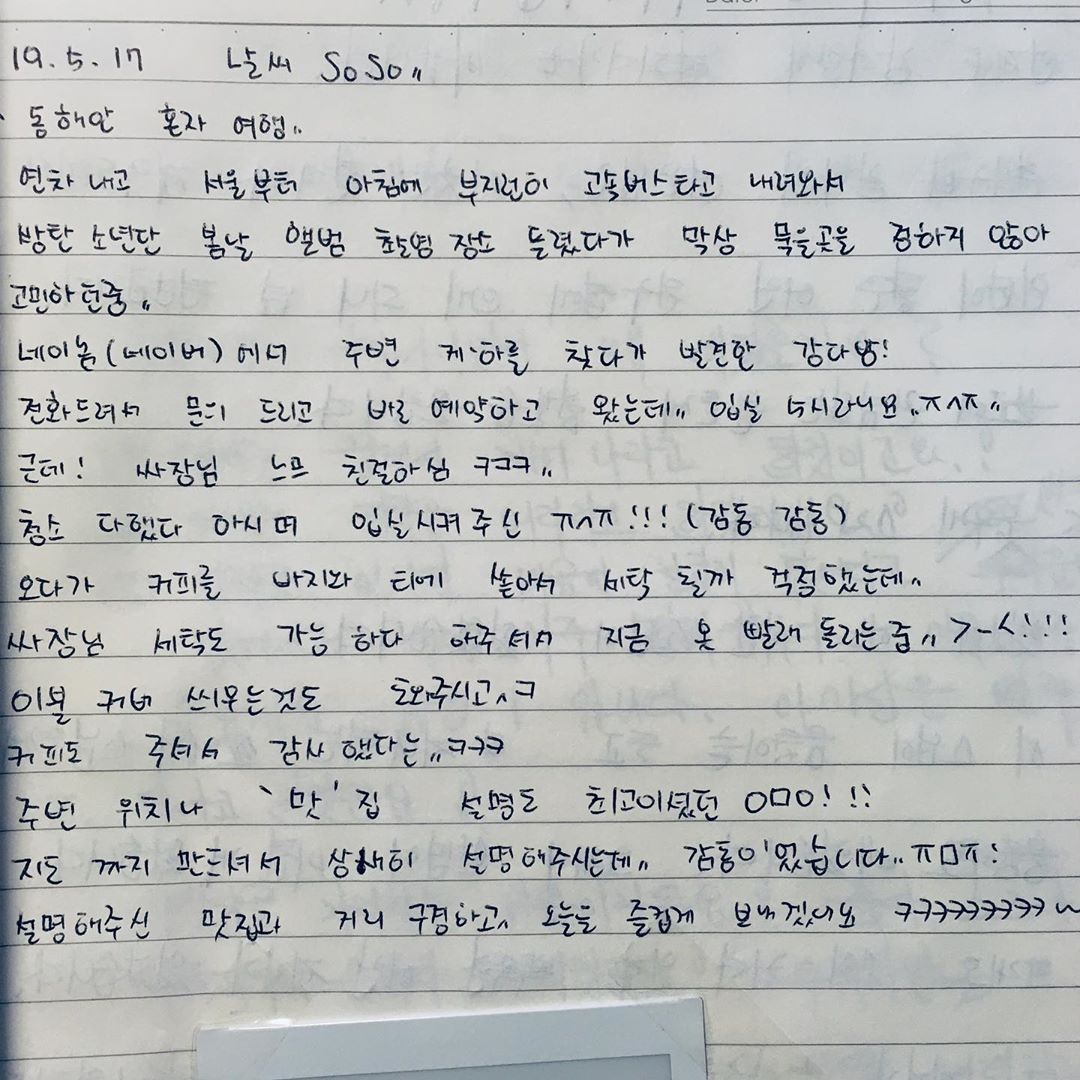 19.5.17 날씨 SoSo,,
동해안 혼자 여행,,
연차 내고 서울부터 아침에 부지런히 고속버스타고 내려와서
방탄 소년단 봄날 앨범 촬영 장소 들렸다가 막상 묵을곳을 정하지 않아
고민하던중,,
네이놈(네이버)에서 주변 게·하를 찾다가 발견한 감다방!
전화드려서 문의 드리고 바로 예약하고 왔는데,, 입실 5시라니요,,ㅠㅅㅠ,,
근데! 싸장님 느므 친절하심 ㅋㅋㅋ,,
청소 다했다 하시며 입실시켜주신 ㅠㅅㅠ!!! (감동 감동)
오다가 커피를 바지와 티에 쏟아서 세탁 될까 걱정했는데,,
싸장님 세탁도 가능하다 해주셔서 지금 옷 빨래 돌리는중,, >-<!!!
이불 커버 씌우는것도 도와주시고,,ㅋ
커피도 주셔서 감사했다는,,ㅋㅋㅋ
주변 위치나 '맛'집 설명도 최고이셨던 ㅇㅁㅇ!!!
지도 까지 만드셔서 상세히 설명해주시는데,, 감동이었습니다..ㅠㅁㅠ!
설명해주신 맛집과 거리 구경하고, 오늘을 즐겁게 보내겠어요 ㅋㅋㅋㅋㅋㅋㅋㅋㅋ~